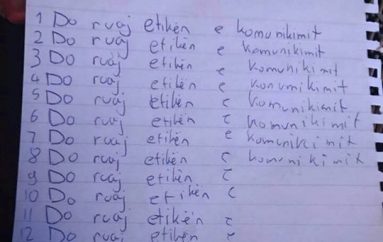 1 Do ruaj etikën e komunikimit
2 Do ruaj etikën e komunikimit
3 Do ruaj etikën e komunikimit
4 Do ruaj etikën e konumikimit
5 Do ruaj etikën e komunikimit
6 Do ruaj etikën e komunikimit
7 Do ruaj etikën e komunikimit
8 Do ruaj etikën e komunikimit
9 Do ruaj etikën e
10 Do ruaj etikën e
11 Do ruaj etikën e
12 Do ruaj etikën e